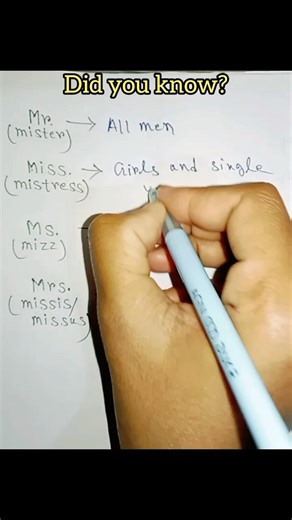 Did you know?
Mr. → All men
(mister)
Miss. → Girls and single
(mistress)
Ms.
(mizz)
Mrs.
(missis/
missus)